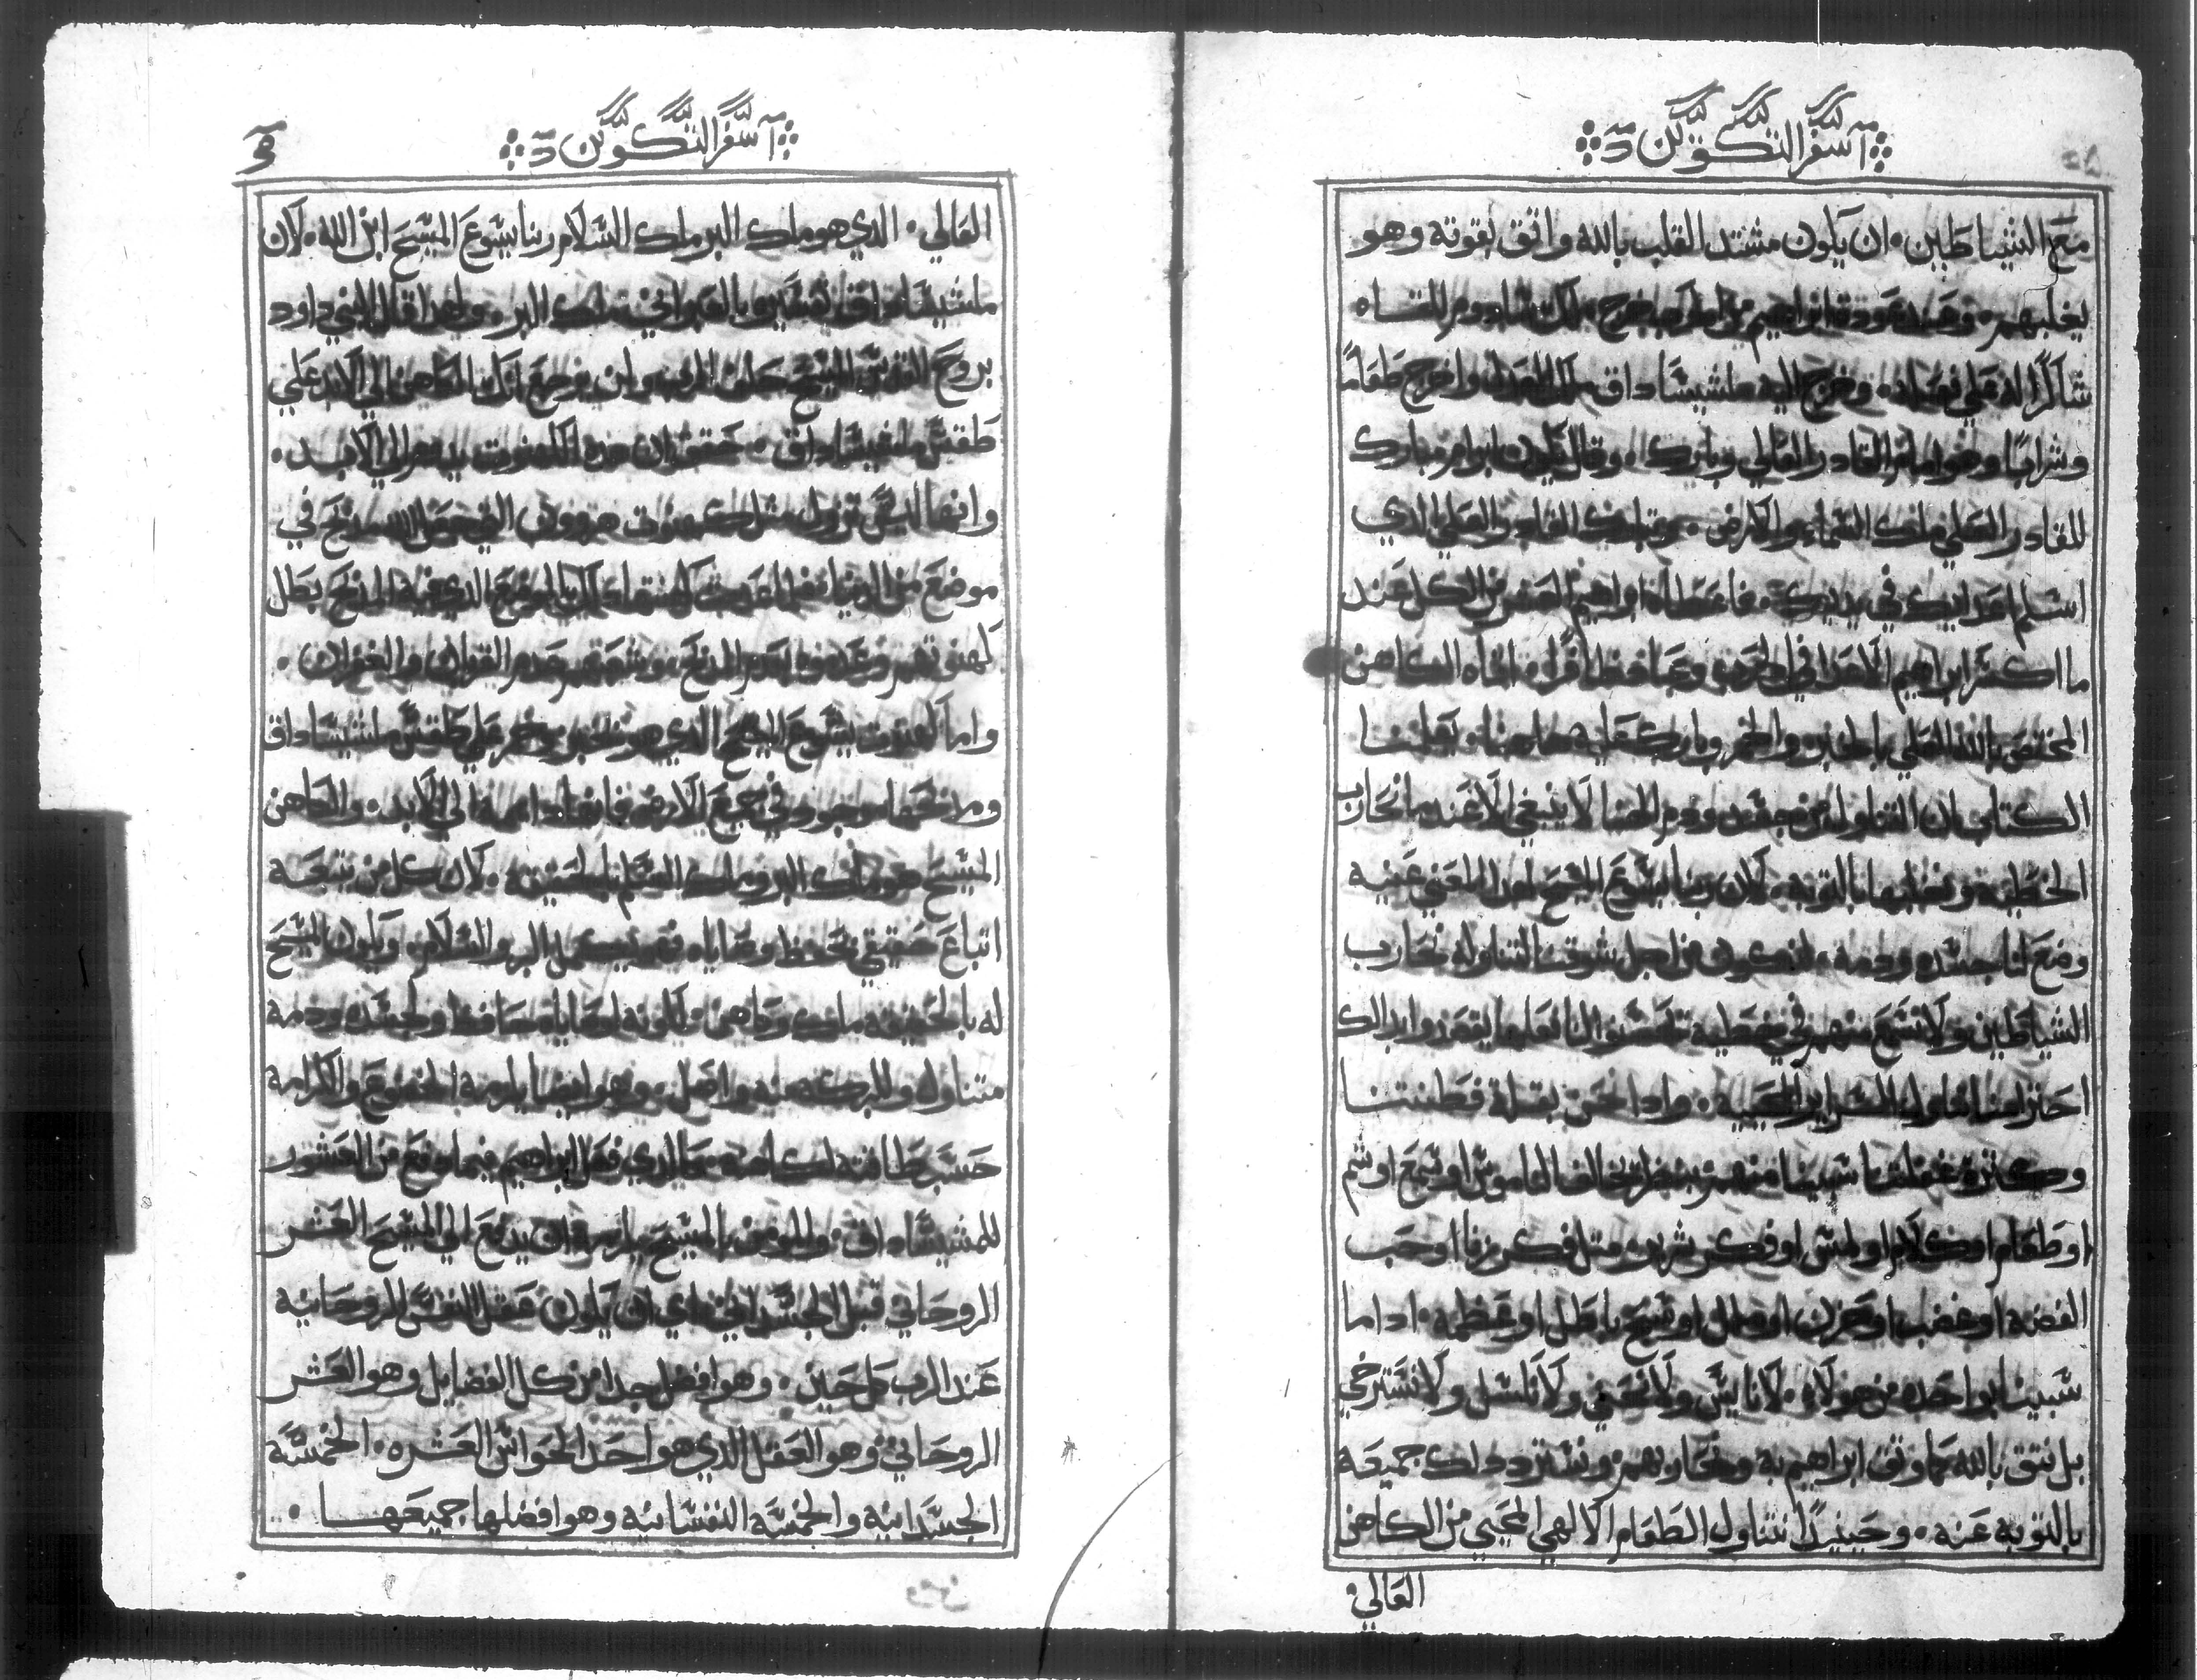 سفر التكوين
مع الشياطين. ان يكون مشتد القلب بالله واثق بقوته وهو
يغلبهم. وعند عودة ابراهيم من الحرب خرج ملك سادوم للقاه
شاكرًا له علي فعله. وخرج اليه ملشيساداق ملك العدل واخرج طعامًا
وشرابًا وهو امام القادر العالي وباركه. وقال يكون ابرام مبارك
للقادر العلي مالك السماء والارض. وتبارك القادر العلي الدي
اسلم اعدايك في يديك. فاعطاه ابراهيم العشر من الكل عند
ما اكسر ابراهيم الاعدا في الحرب وعاد ظافرًا. اتاه الكاهن
المختص بالله العلي بالخبز والخمر وبارك عليه هاهنا يعلمنا
الكتاب ان التناول من جسد ودم الهنا لا ينبغي الا عند ما نحارب
الخطية ونغلبها بالتوبه. لان ربنا يسوع المسيح لهدا المعني عينه
وضع لنا جسده ودمه. لنكون من اجل شوقنا لتناوله نحارب
الشياطين ولا نسمع منهم في خطيه
احترازنا تناول السراير المحييه. وادا نحن بقلة فطنتنا
وكثرة غفلتنا سبينا منهم بنظر مخالف الناموس او سمع او شم
او طعام او كلام او لمس او فكر شرير مثل فكر زنا او حب
الفضه او غضب او حزن او ملل او سبح باطل او عظمه. ادا ما
سبينا بواحده من هولاء. لا نايس ولا نعيي ولا نكسل ولا نسترخي
بل نتق بالله كما وتق ابراهيم به ونحاربهم. ونسترد دلك جميعه
بالتوبه عنه. وحينيدًا نتناول الطعام الالهي المحيي من الكاهن
العالي
سفر التكوين
العالي. الدي هو ملك البر ملك السلام ربنا يسوع المسيح ابن الله. لان
ملشيساداق تفسيره بالعبراني ملك البر. ولهدا قال النبي داود
بروح القدس للمسيح حلف الرب ولن يرجع انك انت الكاهن الي الابد علي
طقس ملشيساداق. تحقق ان هده الكهنوت يدوم الي الابد.
وانها ليس تزول مثل كهنوت هرون التي جعل لها مدبح في
موضع من الدنيا فلما الموضع الدي فيه المدبح بطل
كهنوتهم وعدموا بعدم المدبح وبعدم القربان والغفران.
واما كهنوت يسوع المسيح الدي هو بخبز وخمر علي طقس ملشيساداق
ومدبحها موجود في جميع الارض فانها دايمه الي الابد. والكاهن
المسيح هو ملك البر وملك السلام بالحقيقه. لان كل من يتبعه
اتباع حقيقي بحفظ وصاياه فهو يكمل البر والسلام. ويكون المسيح
له بالحقيقه ملك وكاهن. لكونه لوصاياه حافظ ولجسده ودمه
متناول وللبركه منه واصل. وهو ايضا يلزمه الخضوع والكرامه
حسب طاقته لكاهنه كما الدي فعل ابراهيم فيما دفع من العشور
للمشيساداق. والمومن بالمسيح يلزمه ان يدفع الي المسيح العشر
الروحاني قبل الجسداني. اي ان يكون عقل النفس الروحانيه
عند الرب كل حين. وهو افضل جدا من كل الفضايل وهو العشر
الروحاني. وهو العقل الدي هو احد الحواس العشره. الخمسه
الجسدانيه والخمسه النفسانيه وهو افضلها جميعها.